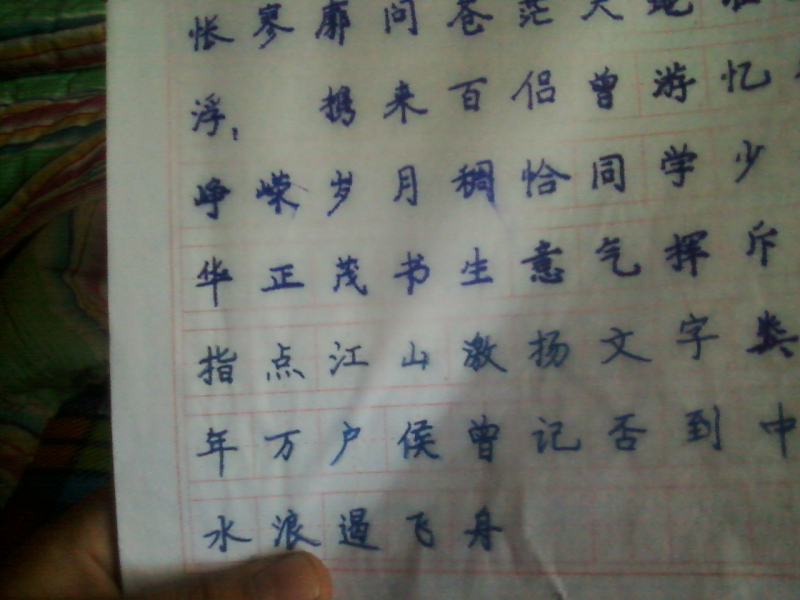 怅寥廓问苍茫大
浮, 携来百侣曾游忆
峥嵘岁月稠恰同学少
华正茂书生意气挥斥
指点江山激扬文字粪
年万户侯曾记否到中
水浪遏飞舟